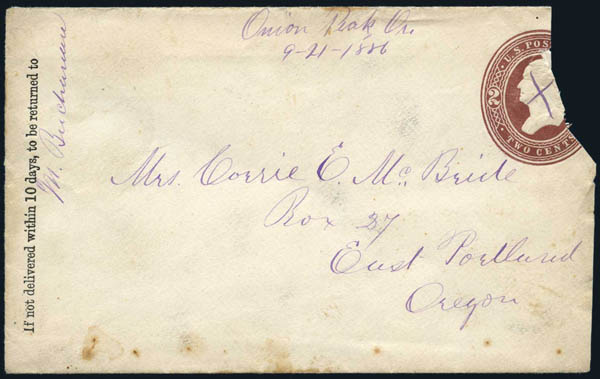 Onion Peak Or.
9-21-1886
U.S. POS
2
TWO CENTS
X
If not delivered within 10 days, to be returned to
M. Buchanan
Mrs. Corrie E. Mc Bride
Box 27
East Portland
Oregon